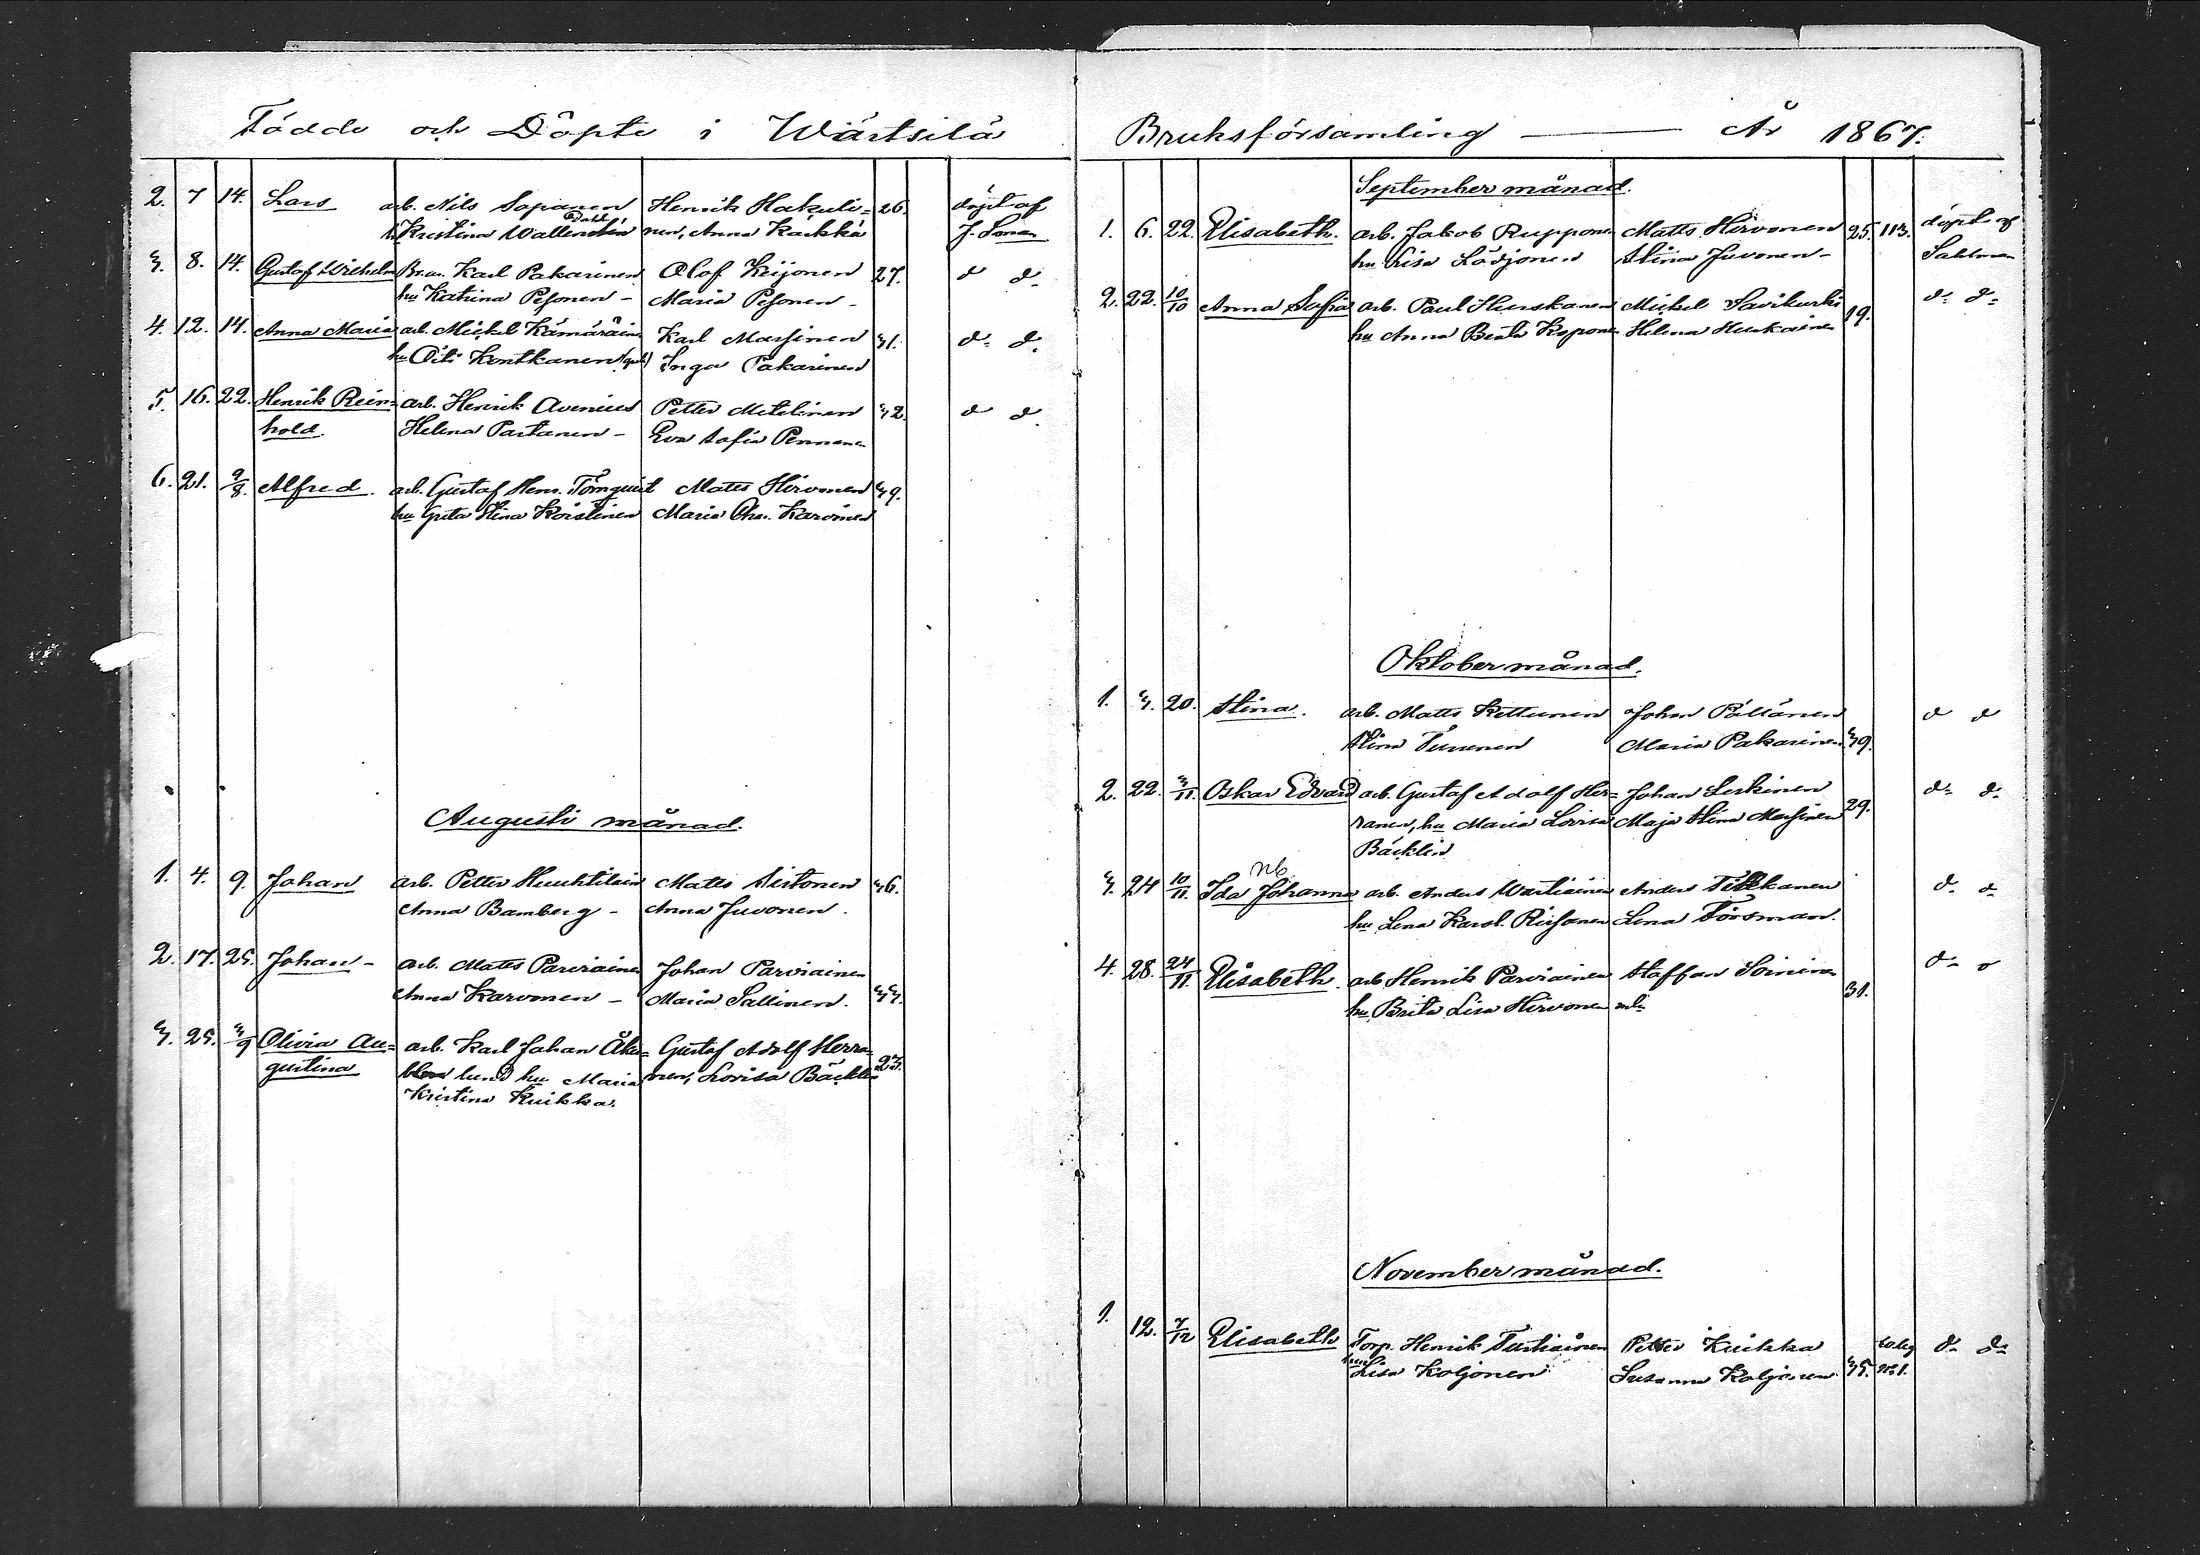 Födde och Döpte i Wärtsilä
2. 7 14. Lars arb. Nils Sopanen Henrik Hakuli= 26. döpt af
Kristina nen, Anna Karhka J.
3. 8. 14. Gustaf Wilhelm Karl Pakarinen Olof Keijonen 27. d d.
hu Katrina Pesonen - Maria Pesonen -
4. 12. 14. Anna Maria arb. Mickel Kämäräin Karl Massinen 31. d. d.
hu Kontkanen Inga Pakarinen
5. 16. 22. Henrik Rein= arb. Henrik Avenius Petter 32. d d.
hold. Helena Partanen - Eva Sofia Pennanen
6. 21. 9/8. Alfred. arb. Gustaf Henr. Törnquist Matts Hirvonen 39.
hu Greta Stina Koistinen Maria Karvinen
Augusti månad.
1. 4. 9. Johan arb. Petter Huuhtilain Matts Sistonen 36.
Anna Bamberg - Anna Juvonen.
2. 17. 25. Johan - arb. Matts Parviainen Johan Parviainen
Anna Karvonen - Maria Sallinen. 33.
3. 25. 3/9 Olivia Au= arb. Karl Johan Åker= Gustaf Adolf Herra=
gustina lund hu Maria nen, Lovisa Bäcklin 23.
Kristina Kuikka.
Bruksförsamling — År 1867.
September månad.
1. 6. 22. Elisabeth. arb. Jakob Rupponen Matts Hirvonen 25. 113. döpt af
hu Lisa Lödjönen Stina Juvonen - Sahlman
2. 22. 10/10 Anna Sofia arb. Paul Huskanen Mickel Savikurki 19. d. d.
hu Anna Beata Kopponen Helena
Oktober månad.
1. 3. 20. Stina. arb. Matts Kettunen Johan Pöllänen d d
Stina Turunen Maria Pakarinen 39.
2. 22. 3/11. Oskar Edvard arb. Gustaf Adolf Her= Johan Leskinen 29. d. d.
ranen, hu Maria Lovisa Maja Stina Massinen
Bäcklin
Nb
3. 24 10/11. Ida Johanna arb. Anders Wartiainen Anders Tikkanen d. d.
hu Lena Karol. Lena Forsman.
4. 28. 24/11. Elisabeth. arb Henrik Parviainen Staffan Soininen 31. d.
hu Brita Lisa Hirvonen
November månad.
1. 12. 7/12 Elisabeth Torp. Henrik Tustiainen Petter Kuikka d. d.
hu Lisa Koljonen Susanna Koljonen 35. No 1.